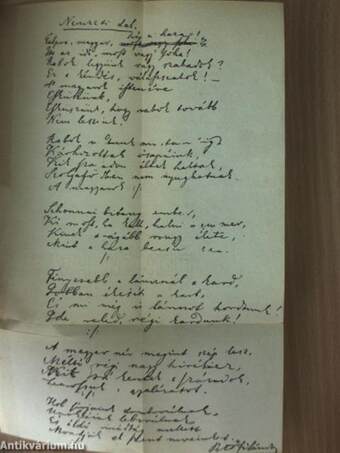 Nemzeti dal.
Talpra magyar, hí a haza!
Itt az idő, most vagy soha!
Rabok legyünk vagy szabadok?
Ez a kérdés, válasszatok! –
A magyarok istenére
Esküszünk,
Esküszünk, hogy rabok tovább
Nem leszünk!
Rabok voltunk mostanáig
Kárhozottak ősapáink,
Kik szabadon éltek haltak,
Szolgaföldben nem nyughatnak.
A magyarok :/:
Sehonnai bitang ember,
Ki most, ha kell, halni nem mer,
Kinek drágább rongy élete,
Mint a haza becsülete.
:/:
Fényesebb a láncnál a kard,
Jobban ékesíti a kart,
És mi még is láncot hordunk!
Ide veled, régi kardunk!
:/:
A magyar név megint szép lesz,
Méltó régi nagy hiréhez,
Mit rá kentek a századok,
Lemossuk a gyalázatot.
Hol sírjaink domborulnak,
Unokáink leborulnak,
És áldó imádság mellett
Mondják el szent neveinket.
Petőfi Sándor
Antikvárium.hu